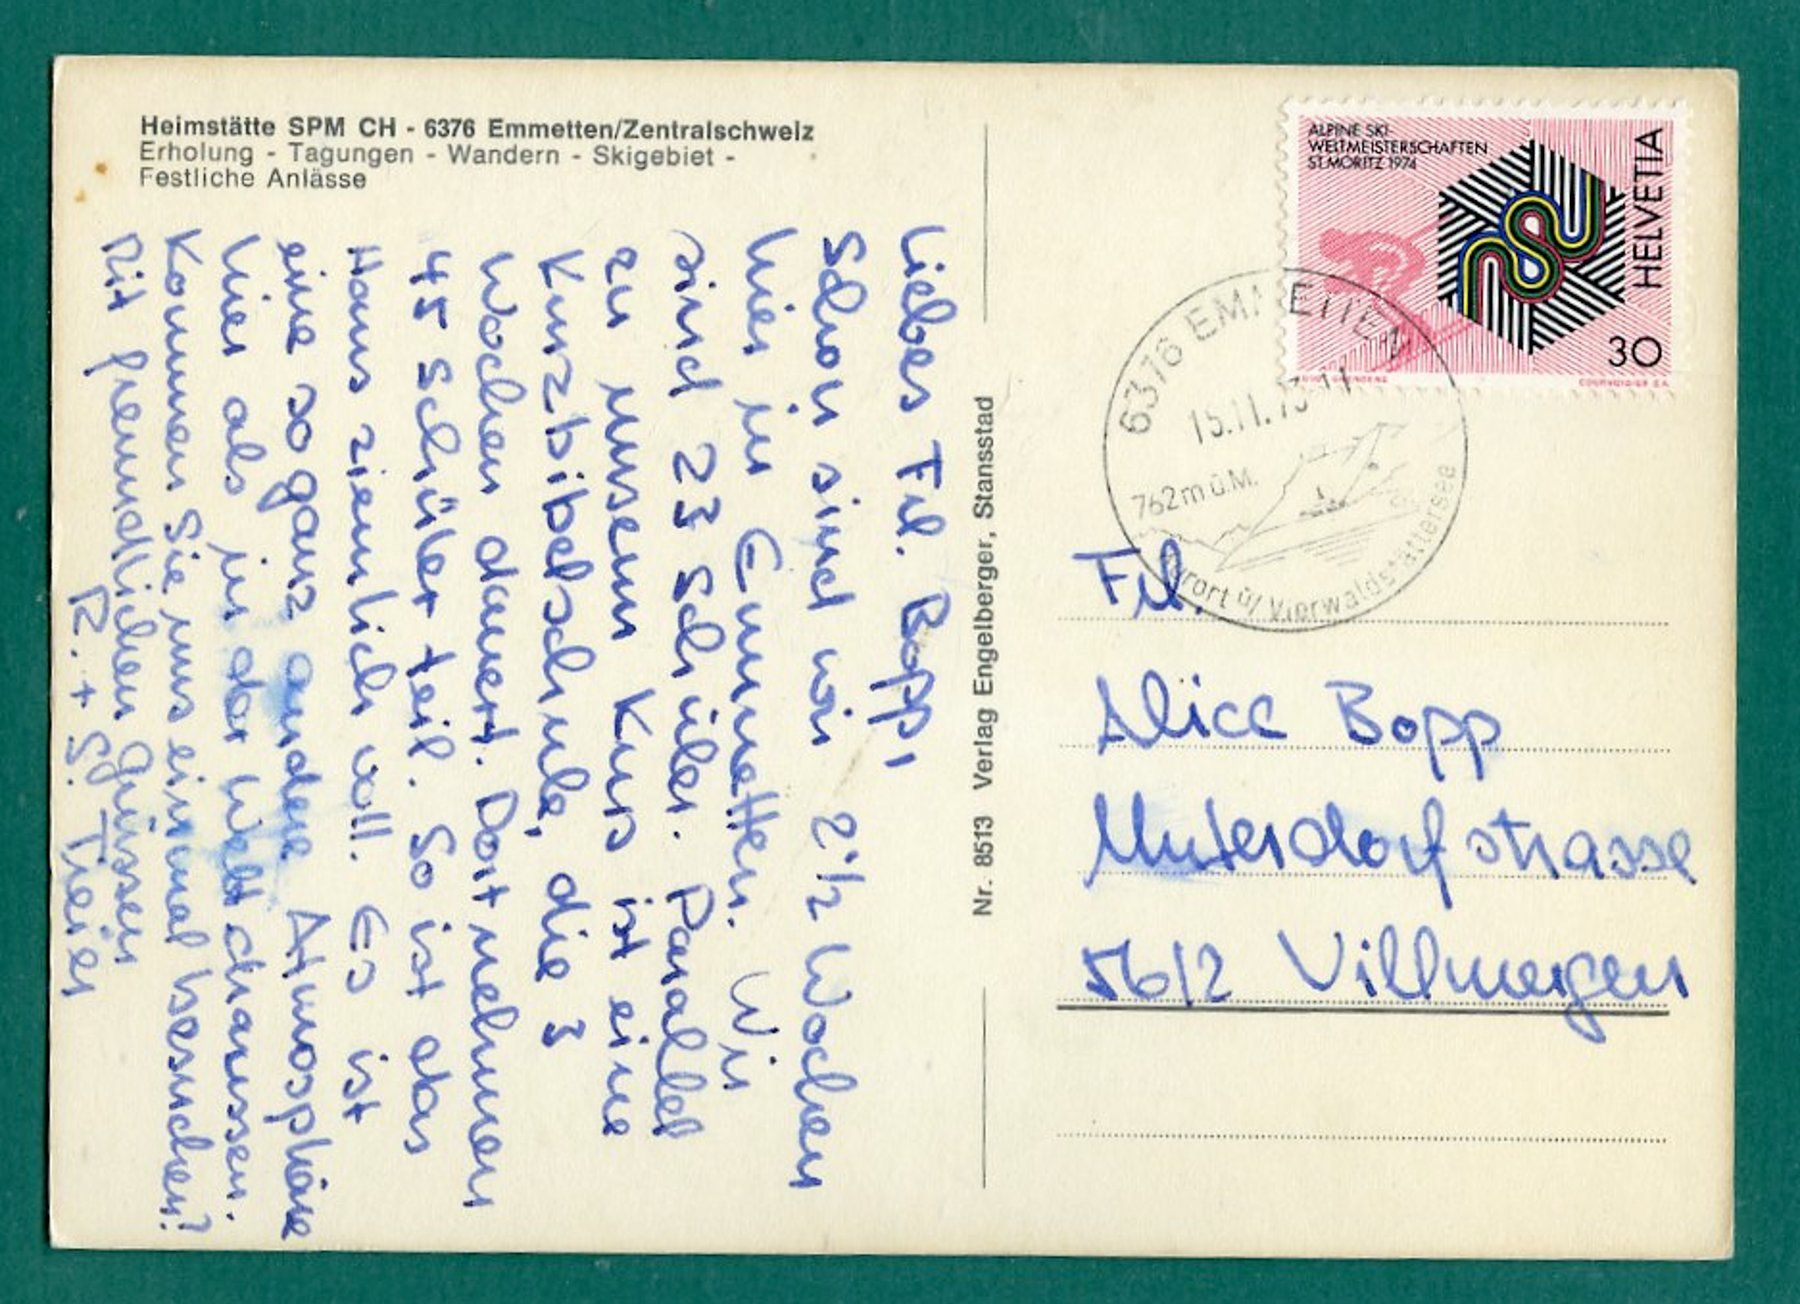 Heimstätte SPM CH - 6376 Emmetten/Zentralschweiz
Erholung - Tagungen - Wandern - Skigebiet -
Festliche Anlässe
Liebes Frl. Bopp,
Schon sind wir 2 1/2 Wochen
hier in Emmetten. Wir
sind 23 Schüler. Parallel
zu unserm Kurs ist eine
Kurzbibelschule, die 3
Wochen dauert. Dort nehmen
45 Schüler teil. So ist das
Haus ziemlich voll. Es ist
eine so ganz andere Atmosphäre
hier als in der Welt draussen.
Kommen Sie uns einmal besuchen?
Mit freundlichen Grüssen
R. + S. Treier
Nr. 8513 Verlag Engelberger, Stansstad
ALPINE SKI-
WELTMEISTERSCHAFTEN
ST. MORITZ 1974
HELVETIA
30
COURVOISIER S.A.
6376 EMMETTEN
15.11.73-11
762 m ü.M.
Kurort ü/Vierwaldstättersee
Frl.
Alice Bopp
Unterdorfstrasse
5612 Villmergen